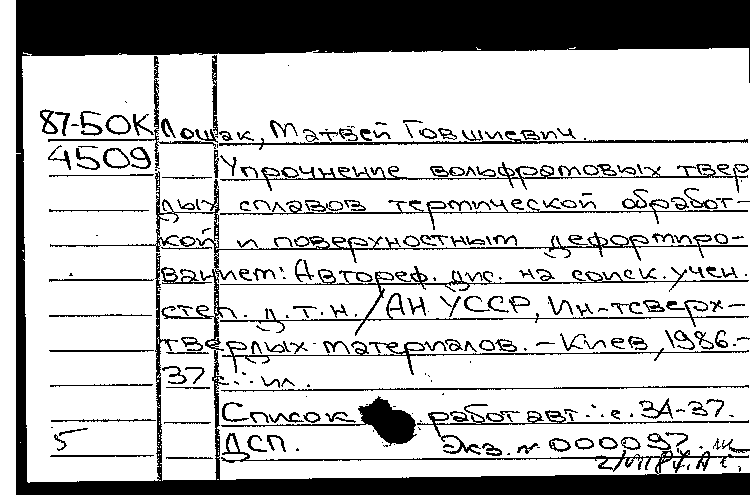 87-5ОК Лошак, Матвей Говшиевич.
4509 Упрочнение вольфрамовых твер
дых сплавов термической обработ-
кой и поверхностным деформиро-
ванием: Автореф. дис. на соиск. учен.
степ. д.т.н. / АН УССР, Ин-т сверх-
твердых материалов. - Киев, 1986. -
37 с.: ил.
Список работ авт.: с. 34-37.
5 ДСП. Экз. № 000097.